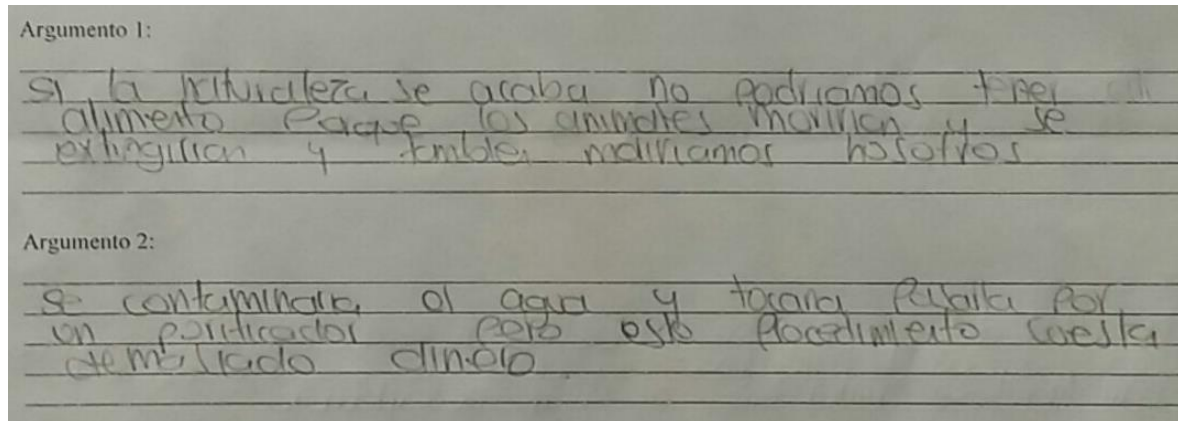 Argumento 1:
Si la naturaleza se acaba no podriamos tener
alimento porque los animales moririan y se
extingirian y tambien moririamos nosotros
Argumento 2:
Se contaminaria el agua y tocaria pasarla por
un purificador pero este procedimiento cuesta
demasiado dinero